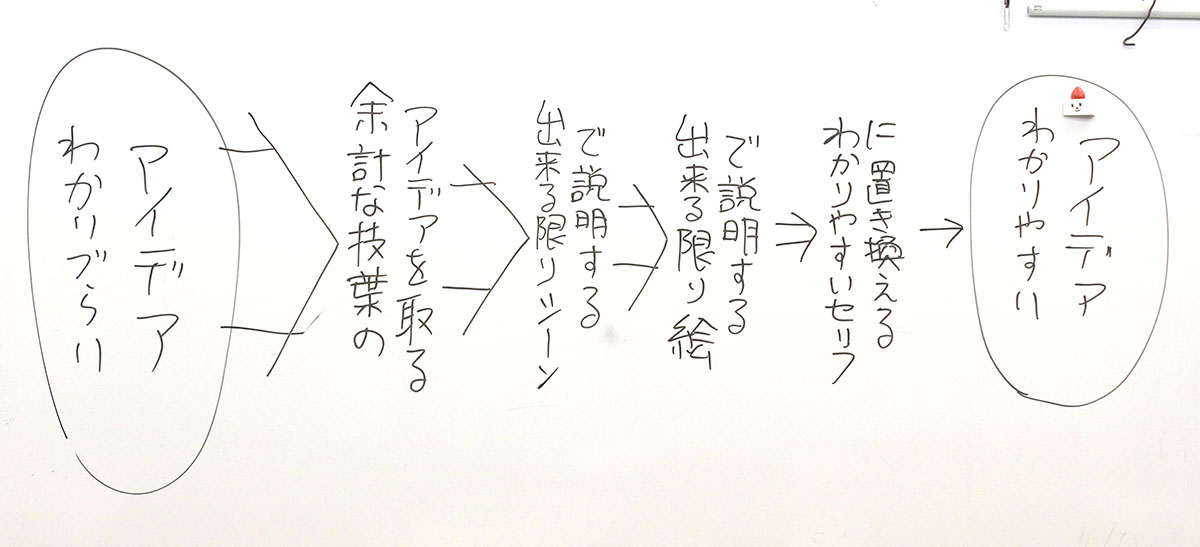 わかりづらい
アイデア
余計な技葉の
アイデアを取る
出来る限りシーン
で説明する
出来る限り絵
で説明する
わかりやすいセリフ
に置き換える
わかりやすい
アイデア